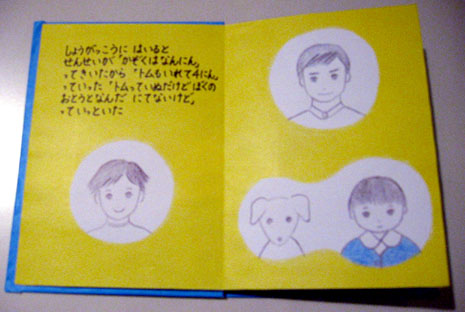 しょうがっこうに はいると
せんせいが「かぞくはなんにん」
ってきいたから「トムもいれて4にん」
っていった「トムっていぬだけど ぼくの
おとうとなんだ にてないけど」
っていっといた